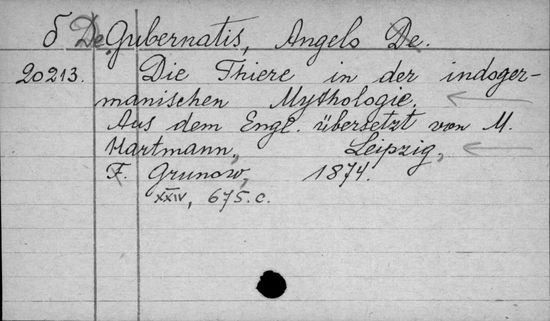 б De Gubernatis, Angelo De.
20213. Die Thiere in der indoger-
manischen Mythologie.
Aus dem Engl. übersetzt von M.
Hartmann, Leipzig,
F. Grunow, 1874.
XXIV, 675.c.